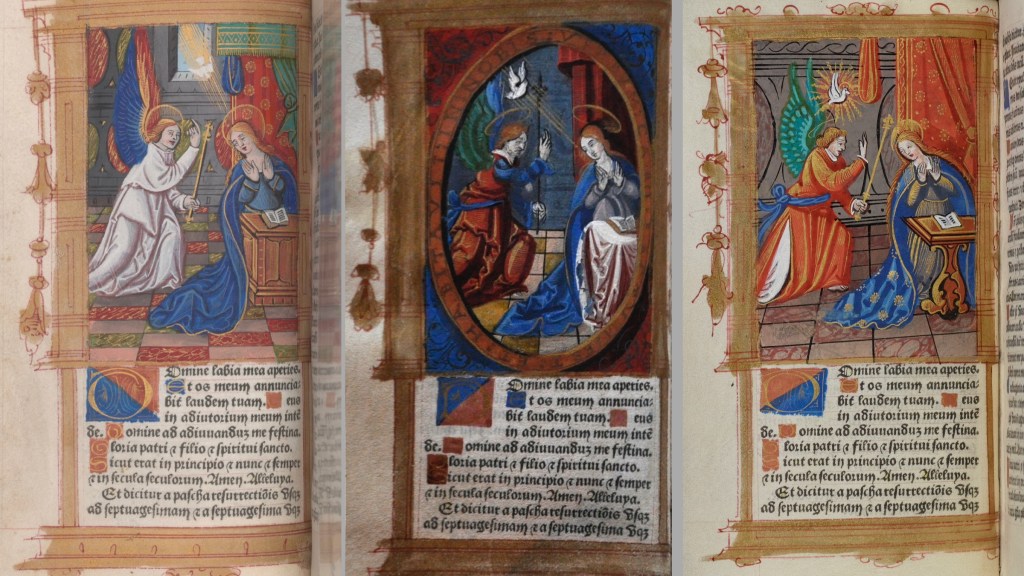 Domine labia mea aperies.
Et os meum annuncia:
bit laudem tuam. Deus
in adiutorium meum intē
de. Domine ad adiuuanduꝫ me festina.
Gloria patri ⁊ filio ⁊ spiritui sancto.
Sicut erat in principio ⁊ nunc ⁊ semper
⁊ in secula seculorum. Amen. Alleluya.
Et dicitur a pascha resurrectiōis vsqꝫ
ad septuagesimam ⁊ a septuagesima vqꝫ
Domine labia mea aperies.
Et os meum annuncia:
bit laudem tuam. Deus
in adiutorium meum intē
de. Domine ad adiuuanduꝫ me festina.
Gloria patri ⁊ filio ⁊ spiritui sancto.
Sicut erat in principio ⁊ nunc ⁊ semper
⁊ in secula seculorum. Amen. Alleluya.
Et dicitur a pascha resurrectiōis vsqꝫ
ad septuagesimam ⁊ a septuagesima vqꝫ
Domine labia mea aperies.
Et os meum annuncia:
bit laudem tuam. Deus
in adiutorium meum intē
de. Domine ad adiuuanduꝫ me festina.
Gloria patri ⁊ filio ⁊ spiritui sancto.
Sicut erat in principio ⁊ nunc ⁊ semper
⁊ in secula seculorum. Amen. Alleluya.
Et dicitur a pascha resurrectiōis vsqꝫ
ad septuagesimam ⁊ a septuagesima vqꝫ